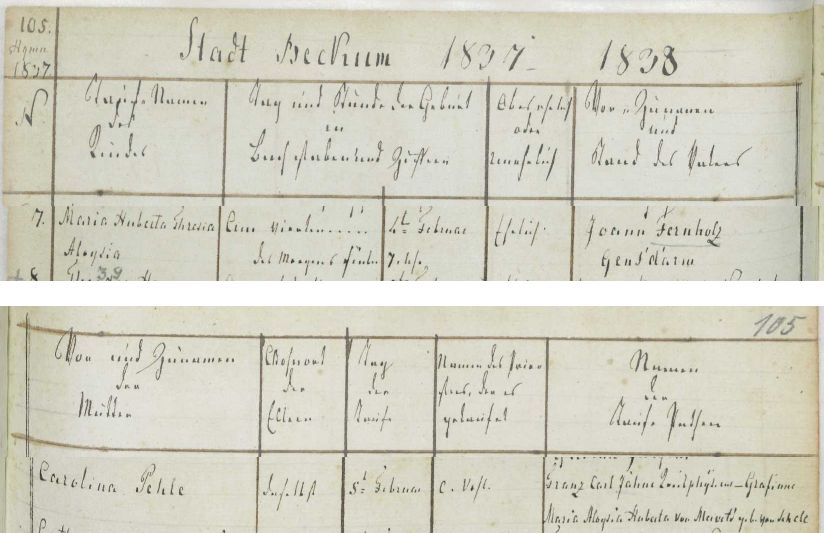 105.
1837
Stadt Beckum 1837 - 1838
N.
Taufe Namen
des
Kindes
Tag und Stunde der Geburt
in
Buchstaben und Ziffern
Ob ehelich
oder
unehelich
Vor- u Zunamen
und
Stand des Vaters
7.
Maria Huberta Theresia
Aloysia
Am vierten
des Morgens
4t Februar
7
Ehelich
Joann Fernholz
Gens'darm
8
39
105
Vor und Zunamen
der
Mutter
Wohnort
der
Eltern
Tag
der
Taufe
Namen des Prie-
sters, der es
getauft
Namen
der
Taufe Pathen
Carolina Pehle
daselbst
5t Februar
Franz Carl Kreisphysicus - Grafinn
Maria Aloysia Huberta von Merveldt geb. von